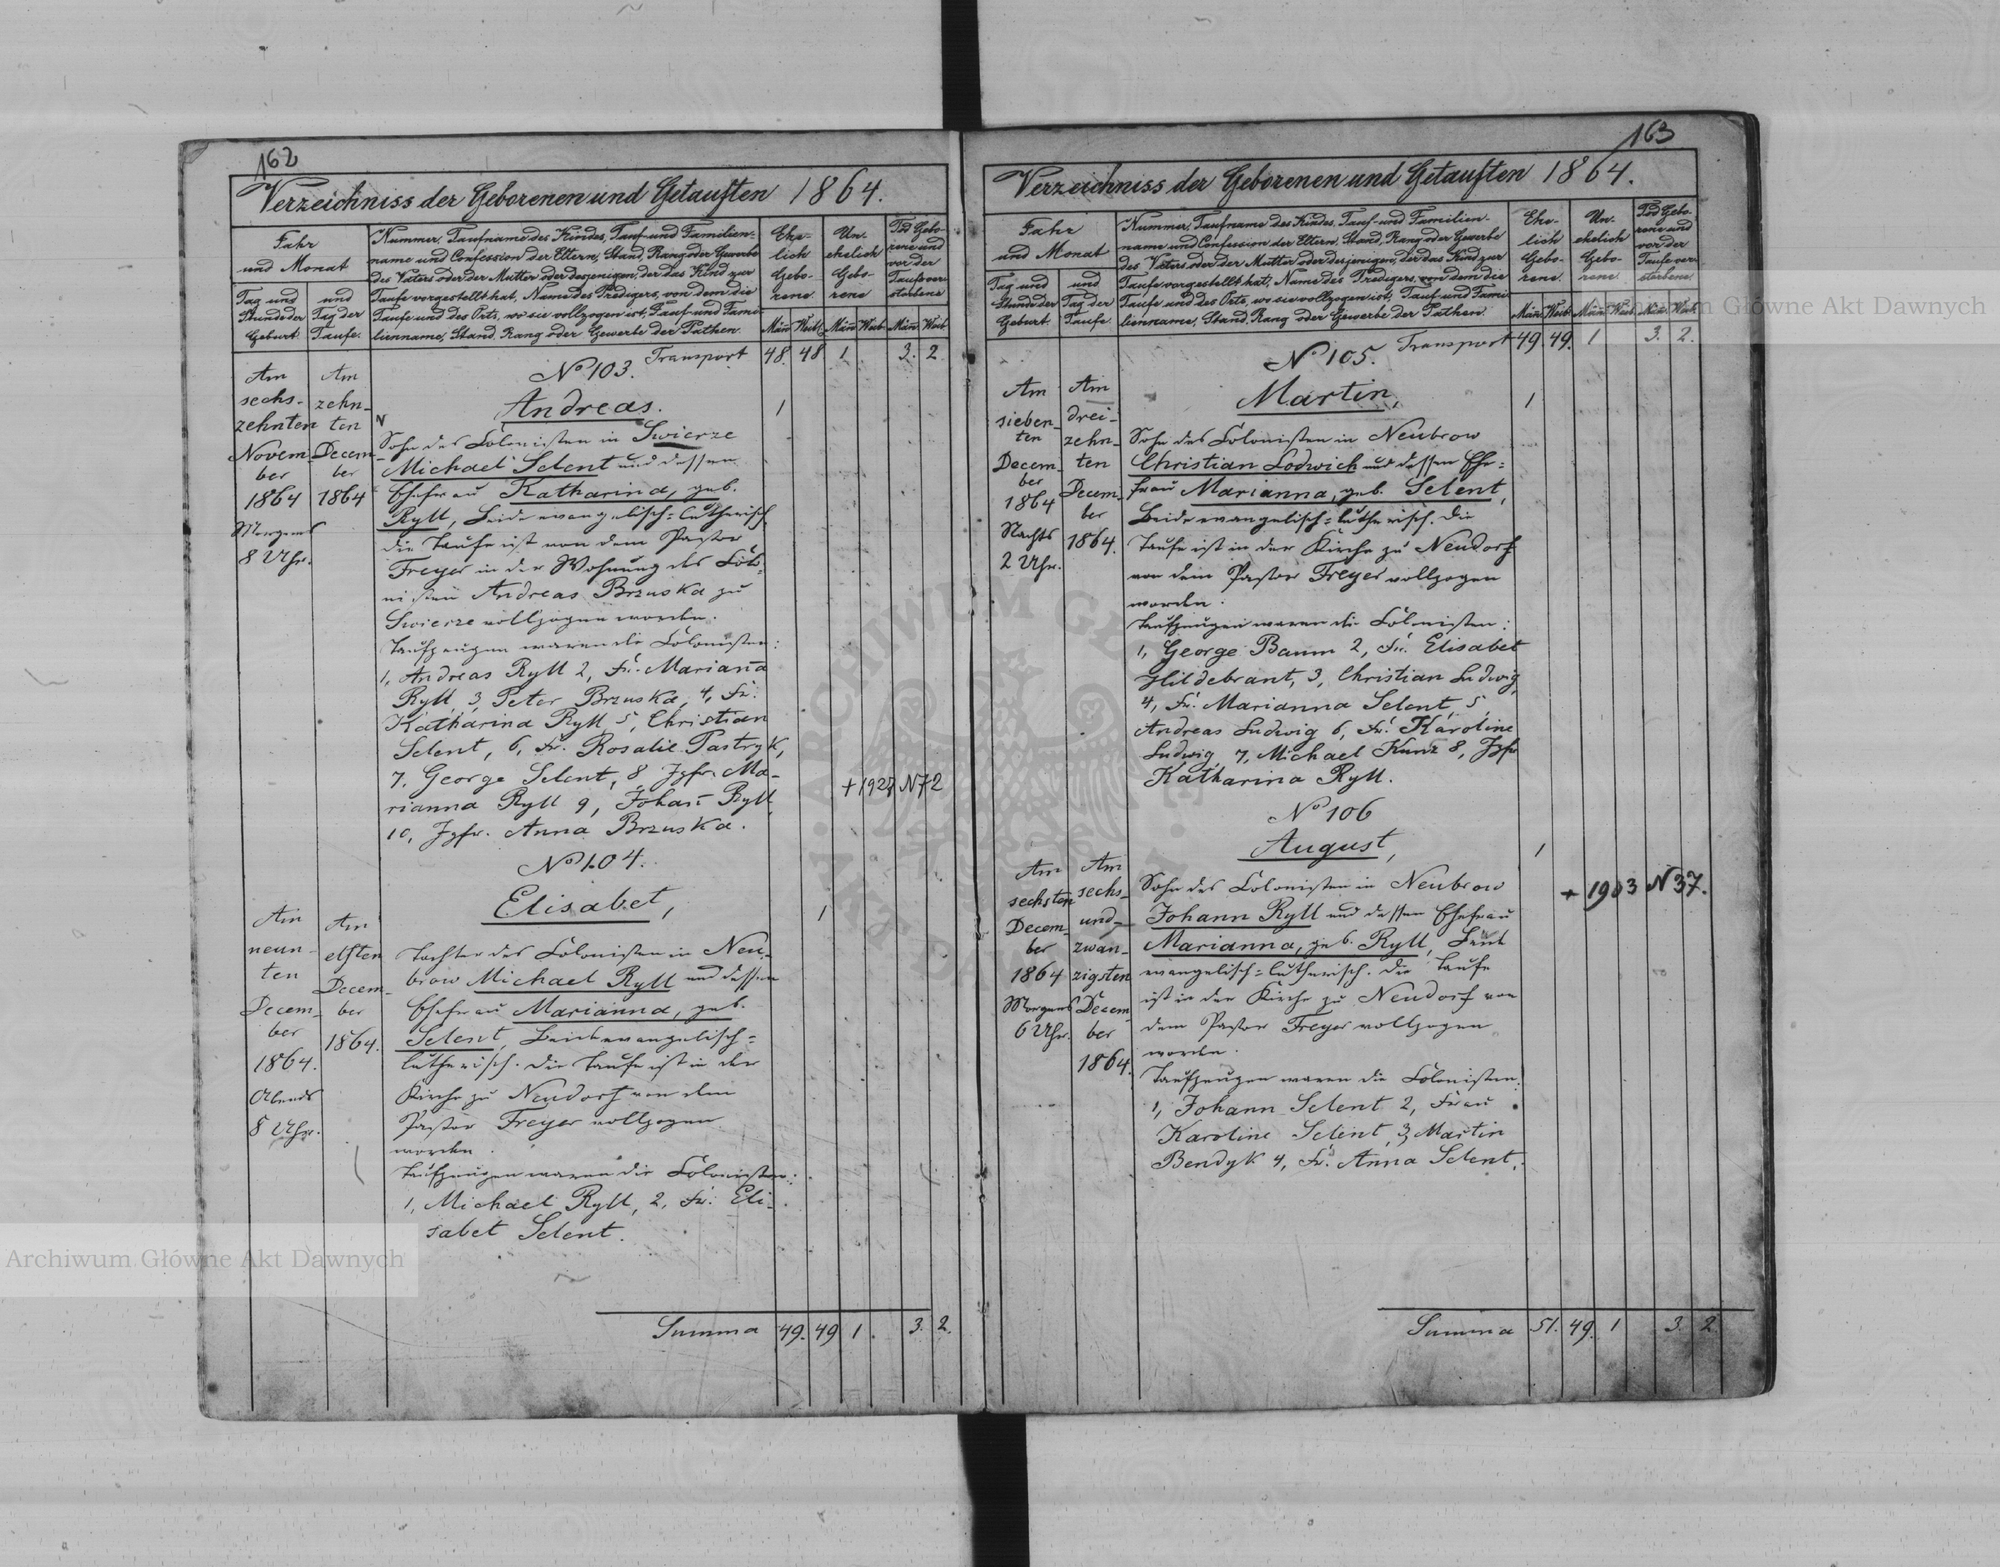 162
Verzeichniss der Geborenen und Getauften 1864.
Jahr
und Monat
Tag und
Stunde der
Geburt.
und
Tag der
Taufe.
Nummer, Taufname des Kindes, Tauf- und Familien-
name und Confession der Eltern, Stand, Rang oder Gewerbe
des Vaters oder der Mutter oder desjenigen, der das Kind zur
Taufe vorgestellt hat, Name des Predigers, von dem die
Taufe und des Orts, wo sie vollzogen ist, Tauf- und Fami-
lienname, Stand, Rang oder Gewerbe der Pathen.
Ehe-
lich
Gebo-
rene
Un-
ehelich
Gebo-
rene
Tod Gebo-
rene und
vor der
Taufe ver-
storbene
Män Weib. Män Weib. Män Weib.
Transport 48. 48 1. 3. 2.
No 103.
Andreas.
1
Am
sechs-
zehnten
Novem-
ber
1864
Morgens
8 Uhr.
Am
zehn-
ten
Decem-
ber
1864
Sohn des Colonisten in Swierze
Michael Selent und dessen
Ehefrau Katharina, geb.
Ryll, beide evangelisch-lutherisch
die Taufe ist von dem Pastor
Freyer in der Wohnung des Colo-
nisten Andreas Brzuska zu
Swierze vollzogen worden.
Taufzeugen waren die Colonisten:
1, Andreas Ryll 2, Fr. Marianna
Ryll, 3, Peter Brzuska, 4, Fr.
Katharina Ryll 5, Christian
Selent, 6, Fr. Rosalie Pastryk,
7, George Selent, 8 Jgfr. Ma-
rianna Ryll 9, Johan Ryll,
10, Jgfr. Anna Brzuska.
+ 1927 N 72
No 104.
Elisabet,
1
Am
neun-
ten
Decem-
ber
1864.
Abends
8 Uhr.
Am
elften
Decem-
ber
1864.
Tochter des Colonisten in Neu-
brow Michael Ryll und dessen
Ehefrau Marianna, geb.
Selent, beide evangelisch-
lutherisch. die Taufe ist in der
Kirche zu Neudorf von dem
Pastor Freyer vollzogen
worden.
Taufzeugen waren die Colonisten:
1, Michael Ryll, 2, Fr. Eli-
sabet Selent.
Summa 49. 49 1. 3. 2.
163
Verzeichniss der Geborenen und Getauften 1864.
Jahr
und Monat
Tag und
Stunde der
Geburt.
und
Tag der
Taufe.
Nummer, Taufname des Kindes, Tauf- und Familien-
name und Confession der Eltern, Stand, Rang oder Gewerbe
des Vaters oder der Mutter oder desjenigen, der das Kind zur
Taufe vorgestellt hat, Name des Predigers, von dem die
Taufe und des Orts, wo sie vollzogen ist, Tauf- und Fami-
lienname, Stand, Rang oder Gewerbe der Pathen.
Ehe-
lich
Gebo-
rene
Un-
ehelich
Gebo-
rene
Tod Gebo-
rene und
vor der
Taufe ver-
storbene
Män Weib. Män Weib. Män Weib.
Transport 49 49. 1 3. 2.
No 105.
Martin,
1
Am
sieben-
ten
Decem-
ber
1864
Nachts
2 Uhr.
Am
drei-
zehn-
ten
Decem-
ber
1864.
Sohn des Colonisten in Neubrow
Christian Lodwich und dessen Ehe-
frau Marianna, geb. Selent,
Beide evangelisch-lutherisch. Die
Taufe ist in der Kirche zu Neudorf
von dem Pastor Freyer vollzogen
worden.
Taufzeugen waren die Colonisten:
1, George Baum 2, Fr. Elisabet
Hildebrant, 3, Christian Ludwig,
4, Fr. Marianna Selent, 5,
Andreas Ludwig 6, Fr. Karoline
Ludwig, 7, Michael Kunz 8, Jgfr
Katharina Ryll.
No 106
August,
1
Am
sechsten
Decem-
ber
1864
Morgens
6 Uhr.
Am
sechs-
und-
zwan-
zigsten
Decem-
ber
1864.
Sohn des Colonisten in Neubrow
Johann Ryll und dessen Ehefrau
Marianna, geb. Ryll, beide
evangelisch-lutherisch. die Taufe
ist in der Kirche zu Neudorf von
dem Pastor Freyer vollzogen
worden.
Taufzeugen waren die Colonisten:
1, Johann Selent 2, Frau
Karoline Selent, 3, Martin
Bendyk 4, Fr. Anna Selent.
+ 1903 N 37.
Summa 51. 49. 1 3. 2
Archiwum Główne Akt Dawnych
Archiwum Główne Akt Dawnych